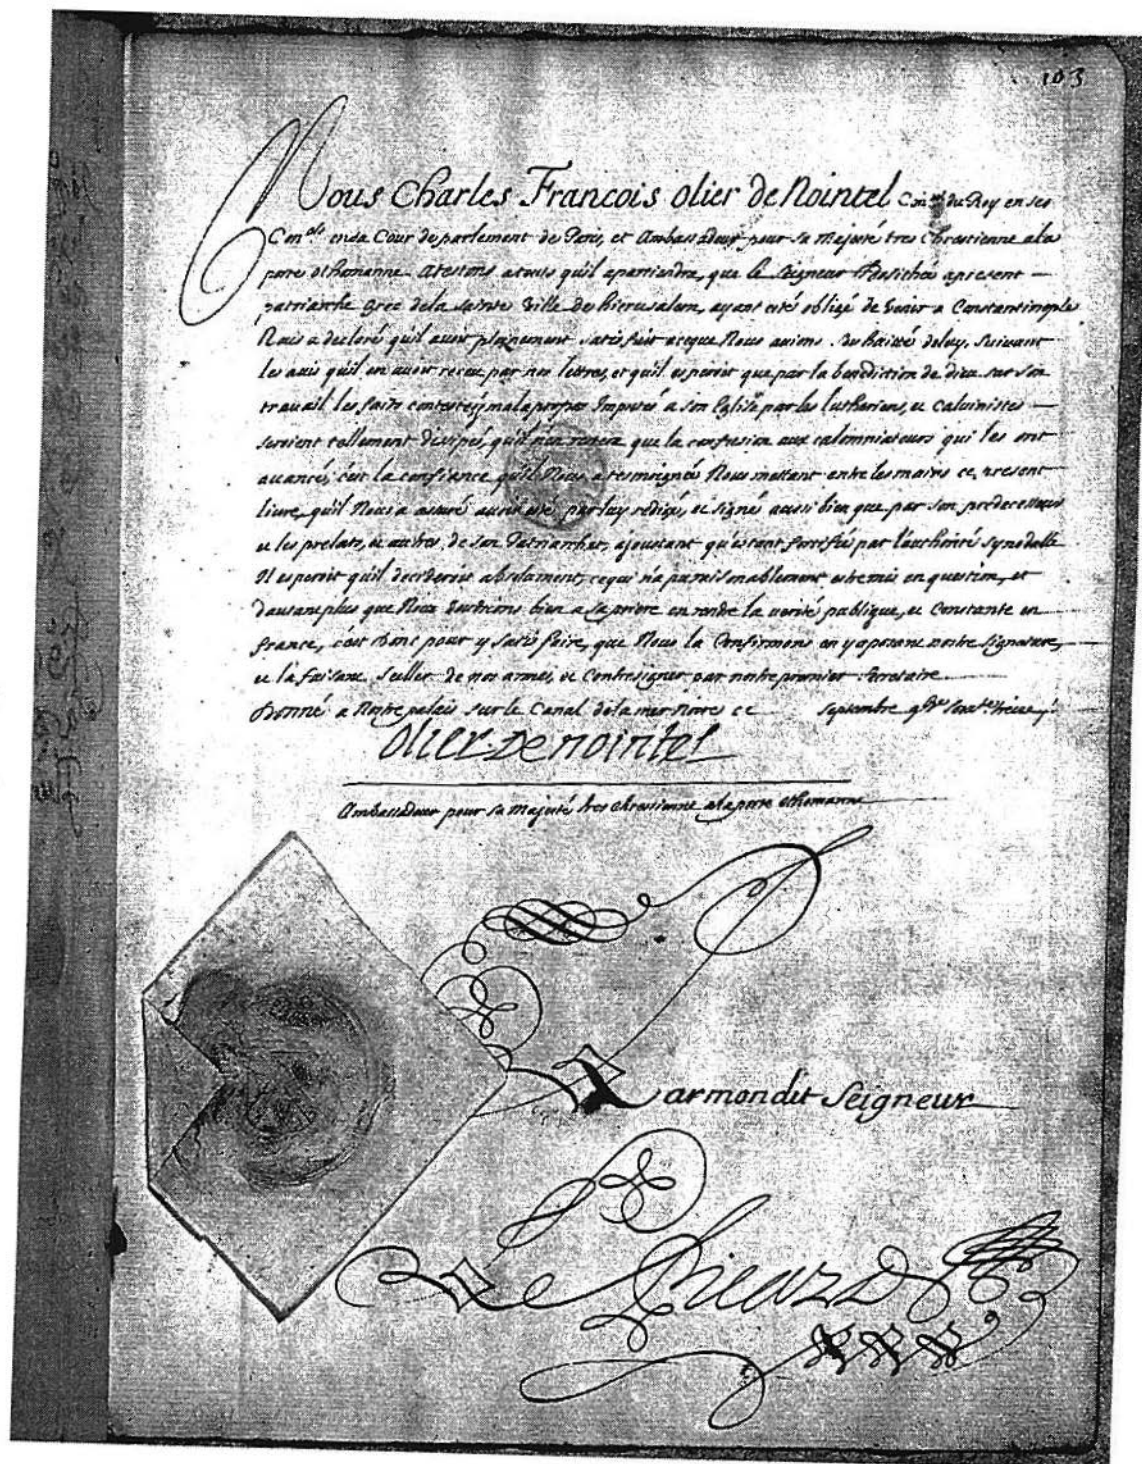 103
Nous Charles Francois olier de Nointel Con.er du Roy en ses
Con.els en sa Cour de parlement de Paris, et Ambassadeur pour sa Majesté tres Chrestienne a la
porte othomanne. Atestons a touts qu'il apartiendra, que le Seigneur Dosithée apresent
patriarche Grec de la Sainte Ville de hierusalem, ayant esté obligé de Venir a Constantinople
Nous a declaré qu'il avoit plainement satisfait a ceque Nous avions souhaitté deluy, suivant
les avis qu'il en avoit receu par nos lettres, et qu'il esperoit que par la benediction de dieu sur son
travail les faits contestéz mal apropos Imputés a son Eglise par les lutheriens, et Calvinistes
seroient tellement disipés, qu'il n'en restera que la confusion aux calomniateurs qui les ont
avancés, c'est la confiance qu'il Nous a tesmoignée Nous mettant entre les mains ce present
livre, qu'il Nous a assuré avoir esté par luy redigé, et signé aussi bien que par son predecesseur
et les prelats, et autres de son Patriarchat, ajoustant qu'estant fortifié par l'authorité synodalle
Il esperoit qu'il decideroit absolument, ce qui n'a pu raisonablement estre mis en question, et
d'autant plus que Nous voudrions bien a sa priere en rendre la verité publique, et Constante en
france, c'est donc pour y satisfaire, que Nous la Confirmons en y aposant nostre signature,
et la faisant seller de nos armes, et Contresigner par nostre premier Secretaire
Donné a Nostre palais sur le Canal de la mer Noire ce septembre
olier De nointel
Ambassadeur pour sa Majesté tres chrestienne a la porte othomanne
Par mondit Seigneur